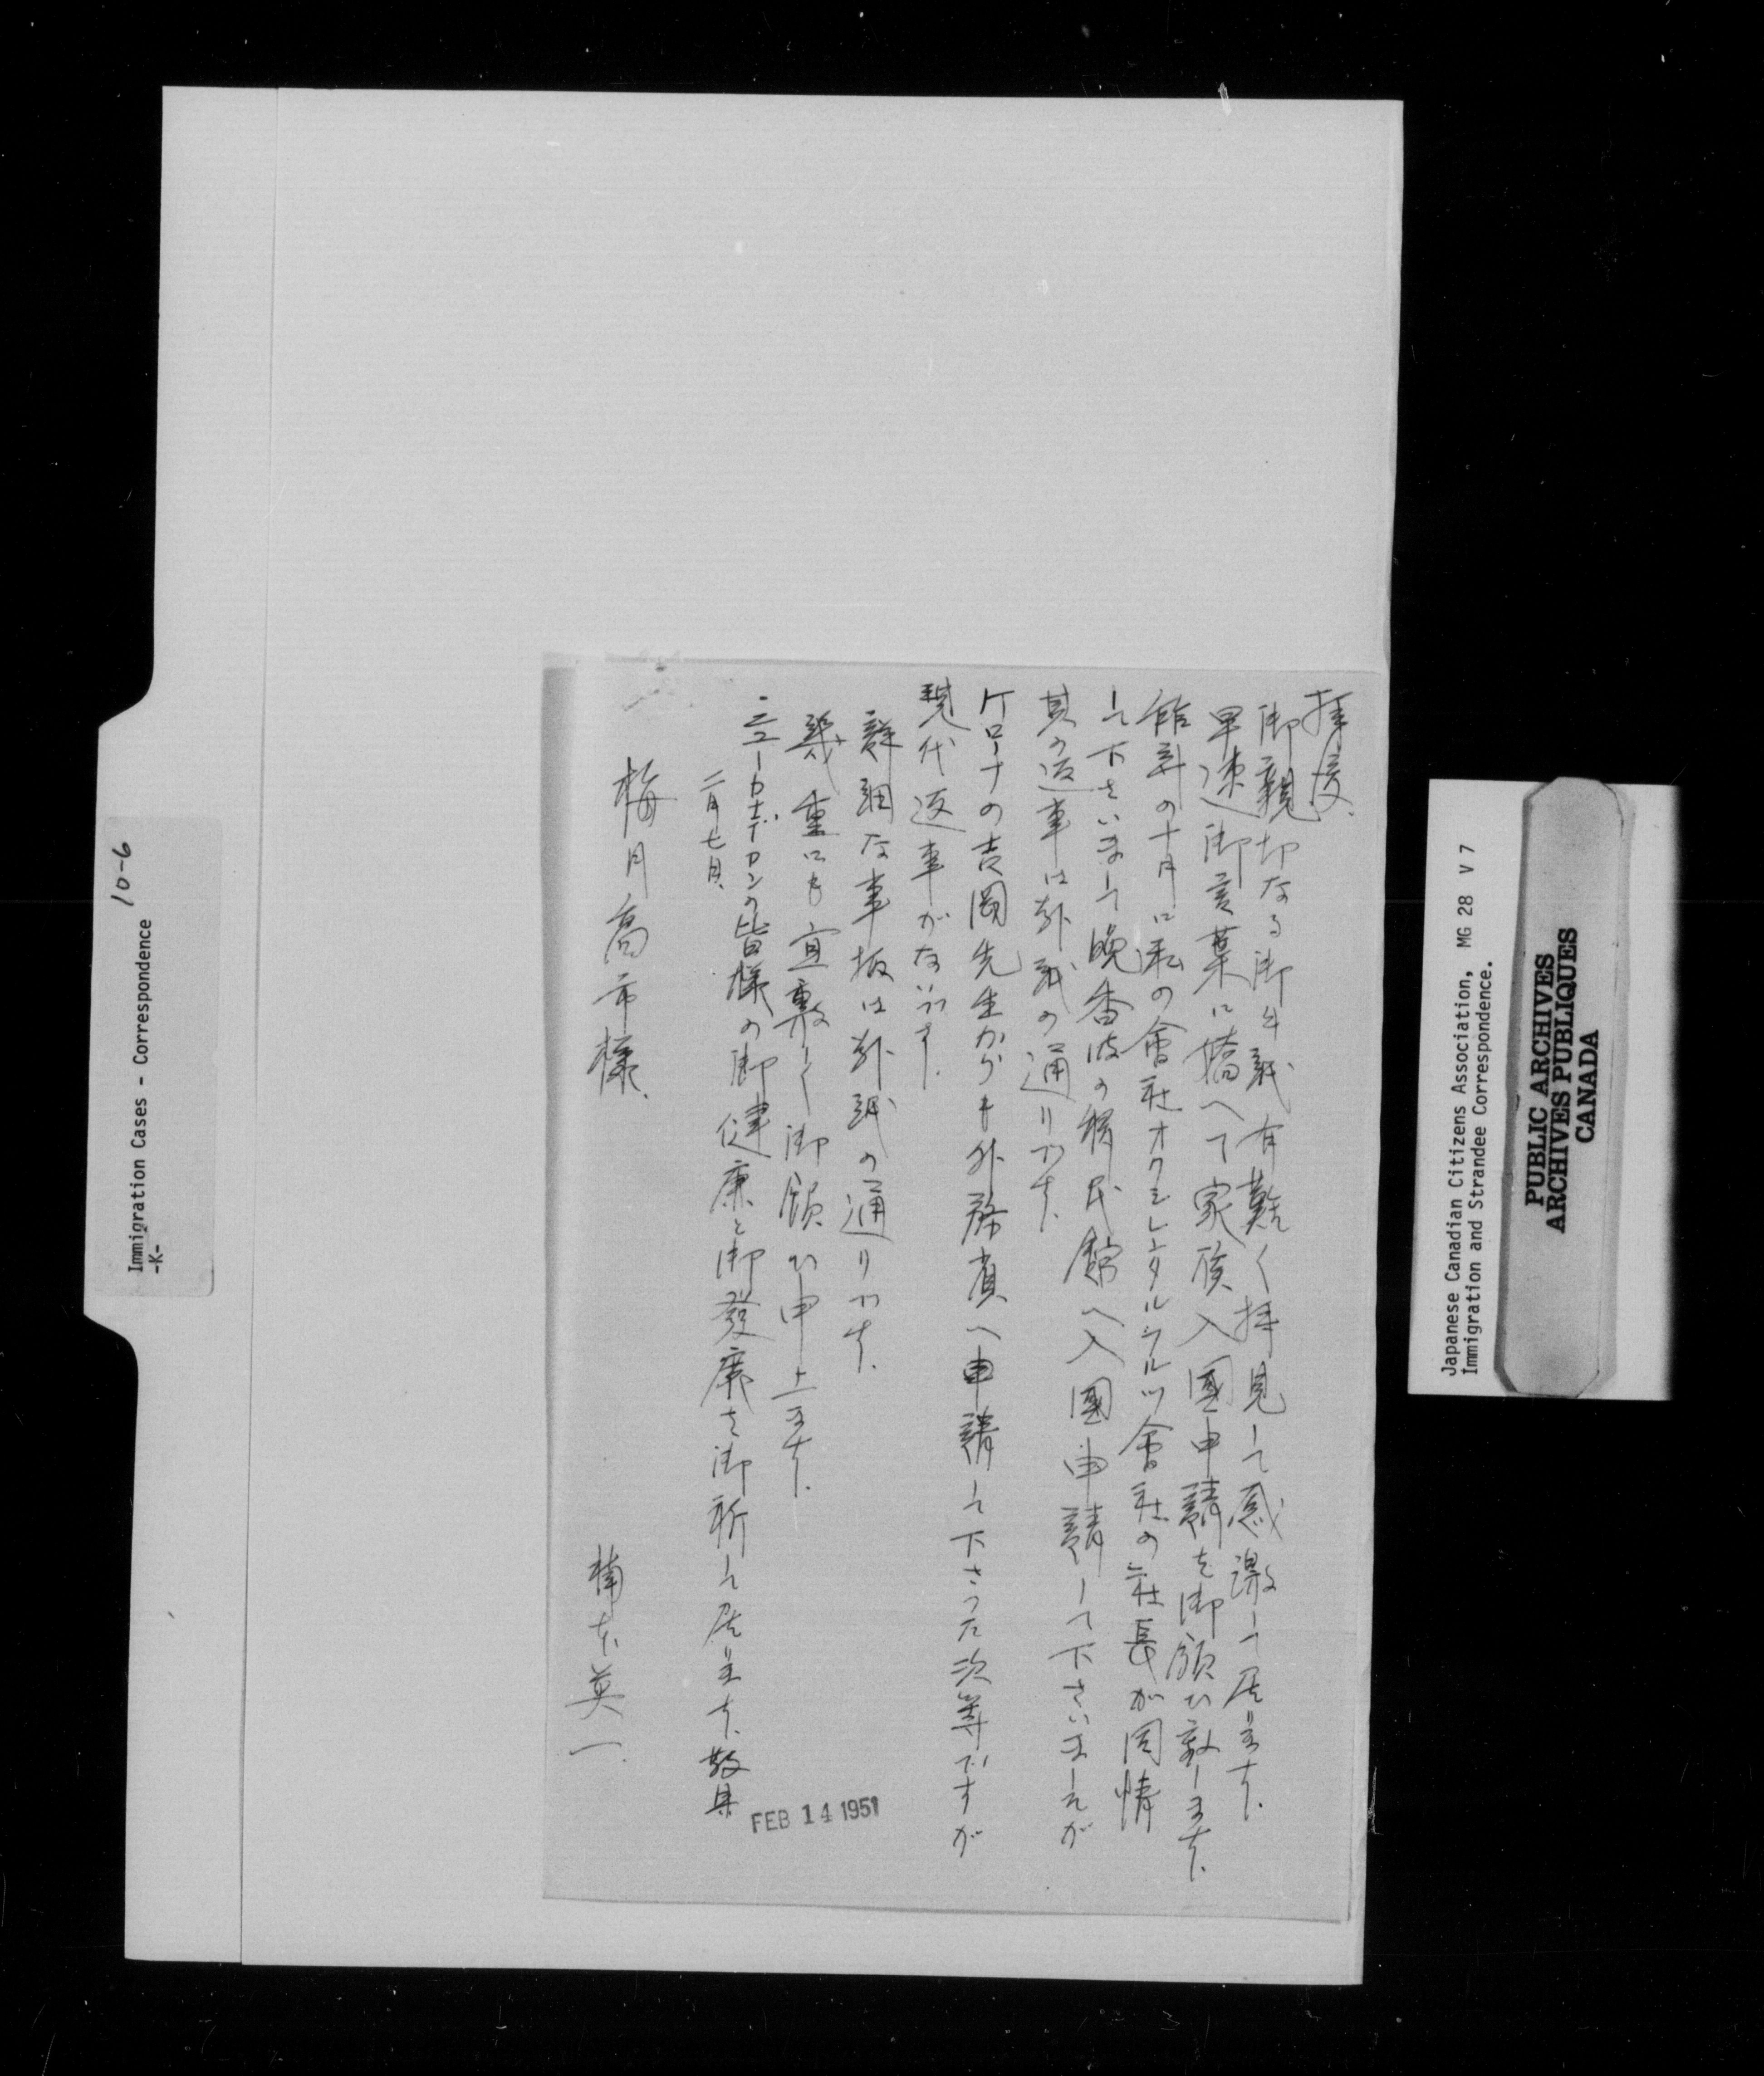 拝復
御親切なる御手紙有難く拝見して感激して居ります.
早速御言葉に橋へて家族入國申請を御願ひ致します.
昨年の十月に私の會社オクシレンタルフルツ會社の社長が同情
して下さいまして晩香波の移民館へ入國申請して下さいましたが
其の返事は別紙の通りです.
ケローナの吉岡先生からも外務省へ申請して下さつた次第ですが
現代返事がないです.
詳細な事項は別紙の通りです.
幾重にも宜敷しく御願ひ申上ます.
ニューカナデアンの皆様の御健康と御發展を御祈して居ります. 敬具
二月七日
梅月高市様.
楠本英一.
FEB 14 1951
Immigration Cases - Correspondence
-K-
10-6
Japanese Canadian Citizens Association, MG 28 V 7
Immigration and Strandee Correspondence.
PUBLIC ARCHIVES
ARCHIVES PUBLIQUES
CANADA